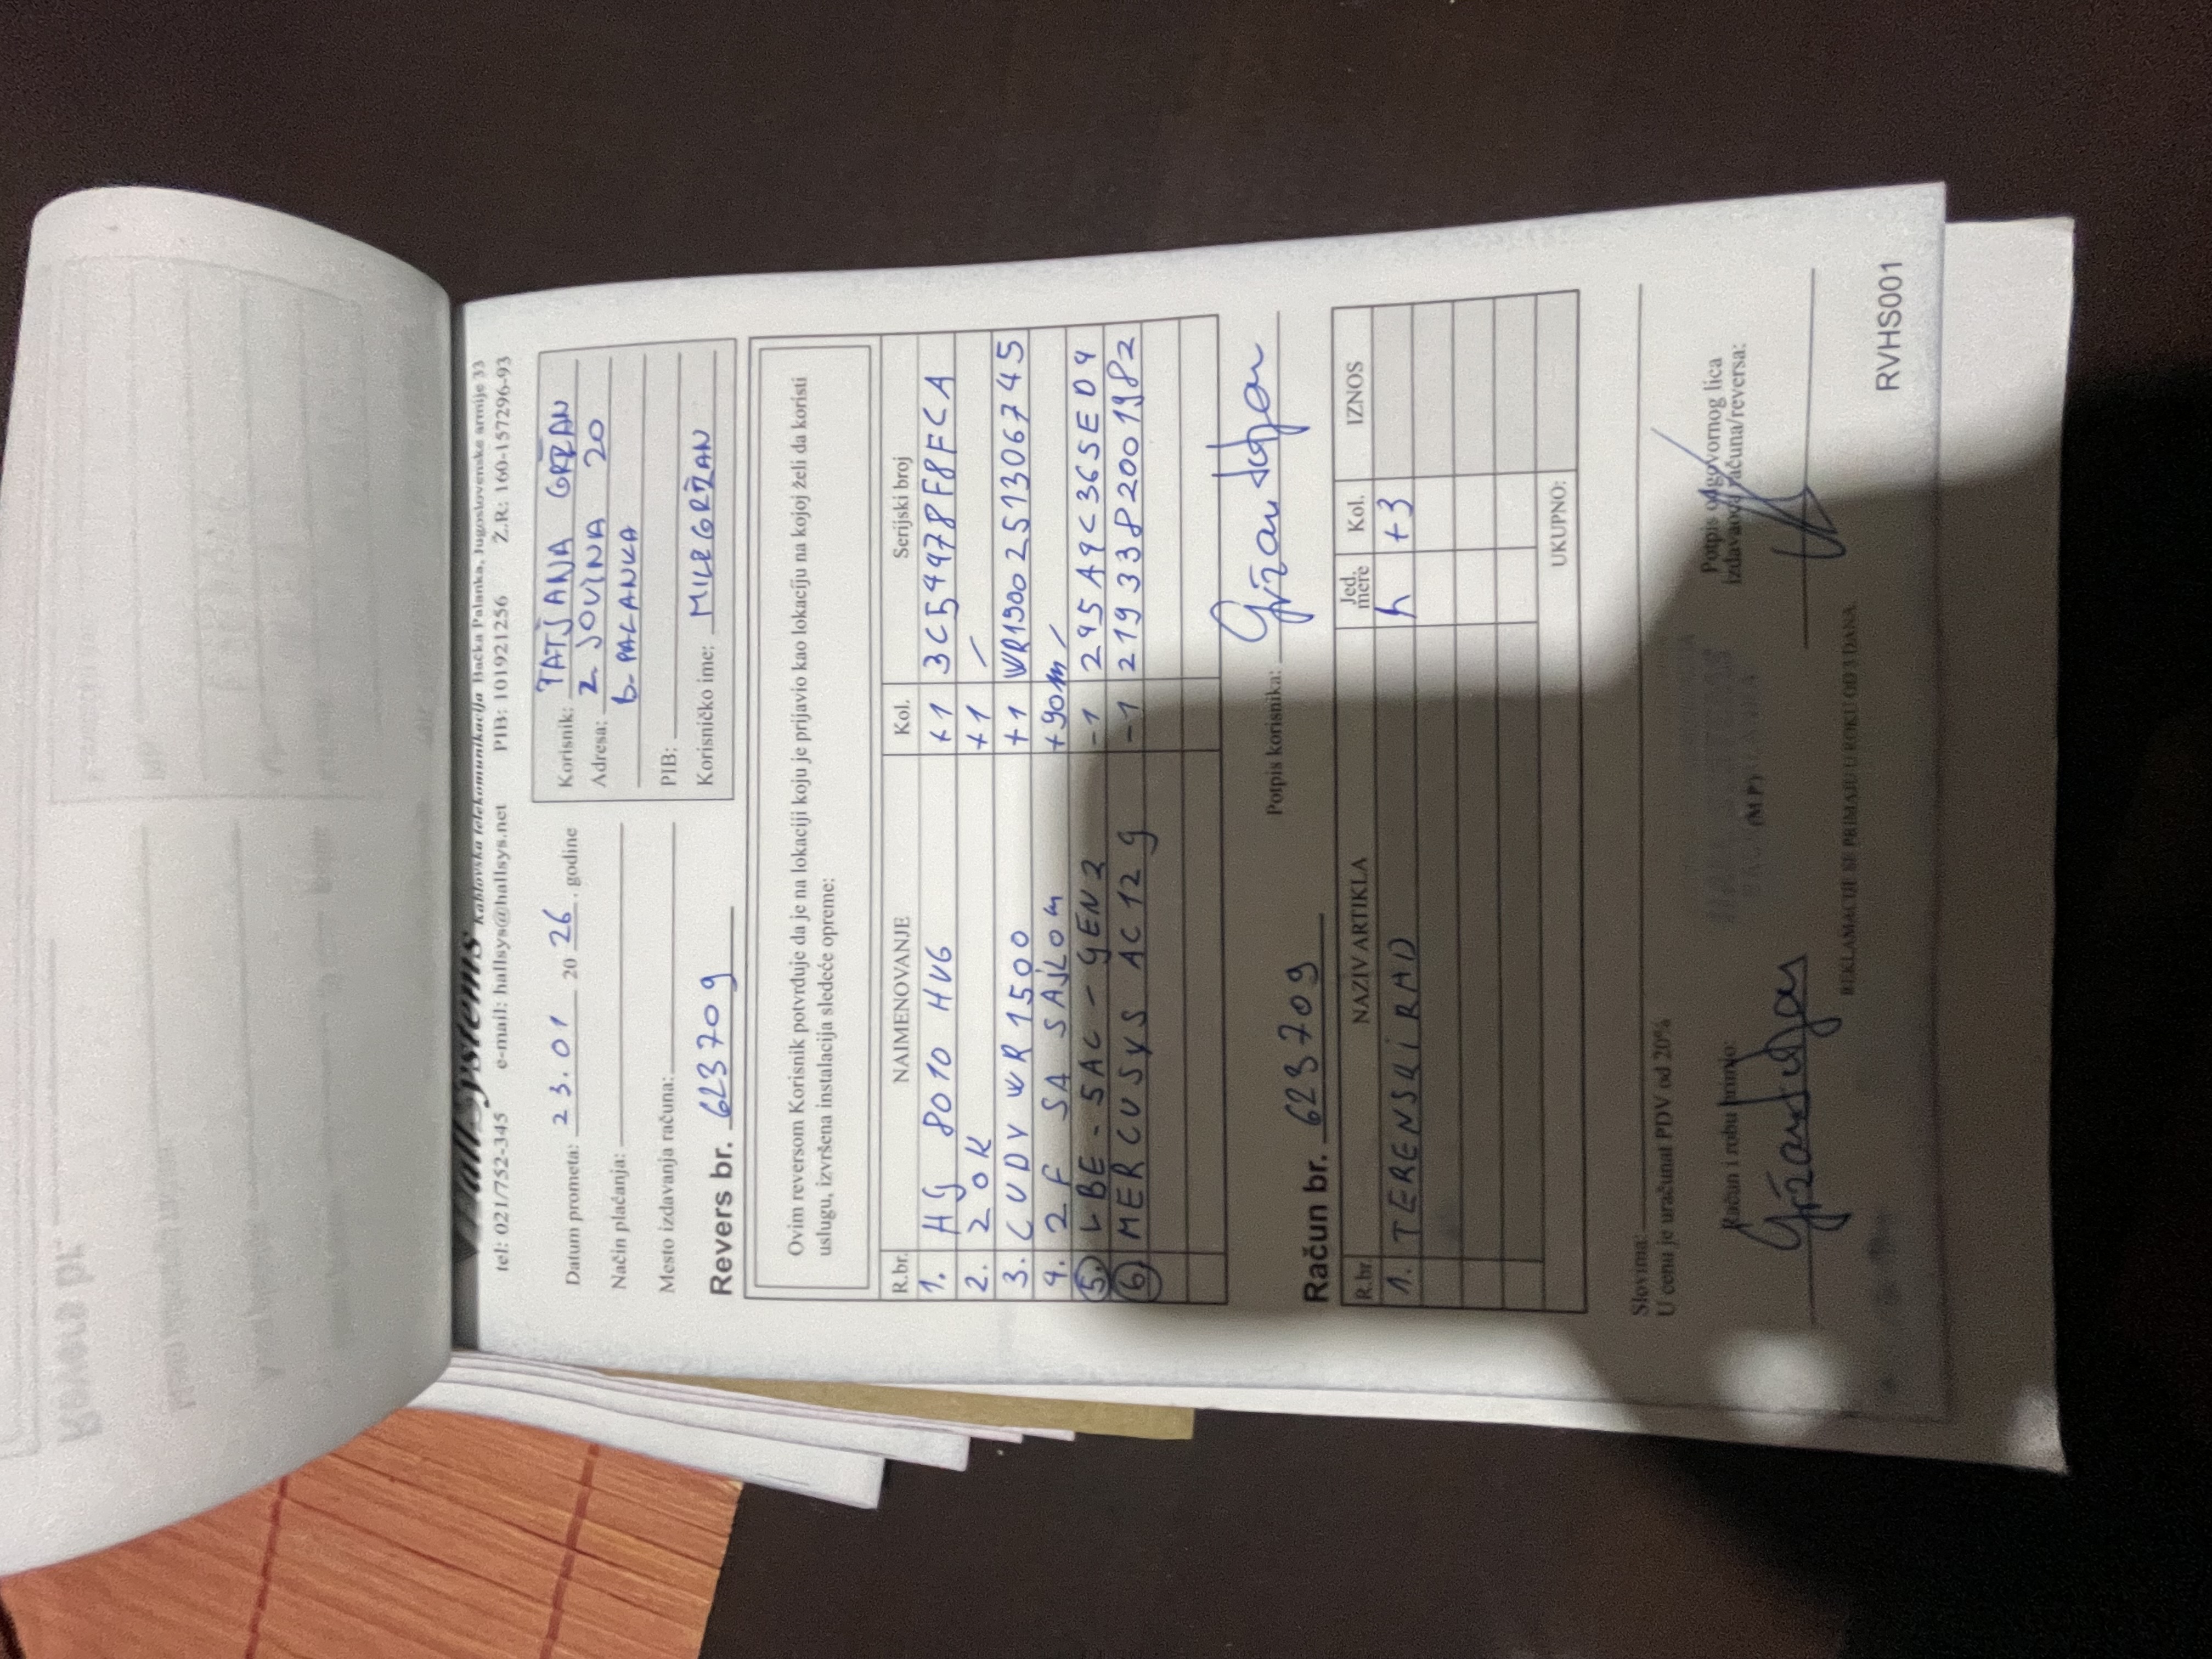 HallSystems Kablovska telekomunikacija Bačka Palanka, Jugoslovenske armije 33
tel: 021/752-345 e-mail: hallsys@hallsys.net PIB: 101921256 Ž.R.: 160-157296-93
Datum prometa: 23.01 20 26. godine
Način plaćanja:
Mesto izdavanja računa:
Korisnik: TATJANA GRŽAN
Adresa: 2. JOVINA 20
B. PALANKA
PIB:
Korisničko ime: MILRGRŽAN
Revers br. 623709
Ovim reversom Korisnik potvrđuje da je na lokaciji koju je prijavio kao lokaciju na kojoj želi da koristi
uslugu, izvršena instalacija sledeće opreme:
R.br. NAIMENOVANJE Kol. Serijski broj
1. HG 8010 HV6 +1 3C54478F8FCA
2. ZOK +1 /
3. CUDY WR1500 +1 WR1500251306745
4. 2F SA SAJLOM +90m /
5. LBE-5AC-GEN2 -1 245A4C365ED4
6. MERCUSYS AC12G -1 2193382001982
Potpis korisnika: Gržan Tatjana
Račun br. 623709
R.br. NAZIV ARTIKLA Jed. mere Kol. IZNOS
1. TERENSKI RAD h +3
UKUPNO:
Slovima:
U cenu je uračunat PDV od 20%
Račun i robu primio:
(M.P.)
Potpis odgovornog lica
izdavaoca računa/reversa:
REKLAMACIJE SE PRIMAJU U ROKU OD 3 DANA.
RVHS001